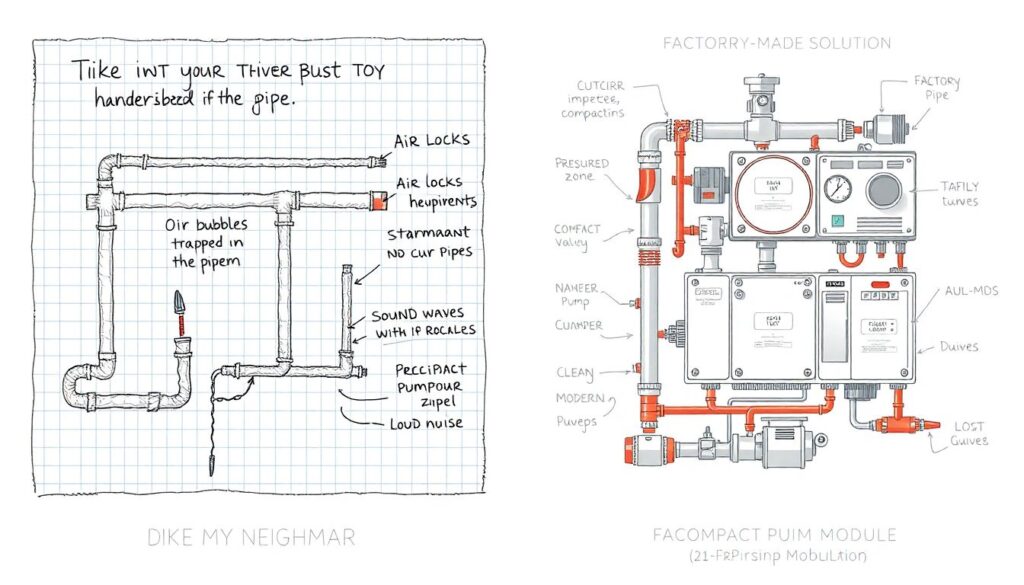 Tiike inT your THIVER BUST TOY
handersbzed if the gipe.
AIR LOCKS
AIR locks
heupirents
Oir bubbles
trapped in
the pipem
Starmaant
NO CUr PIPES
SOUND WAVES
WITH IF ROCALES
PECCIPACT
PUMPOUR
ZIPEL
LOUD NUISE
DIKE MY NEIGHMAR
FACTORRY-MADE SOLUTION
CUTCIRR
impetee,
compactins
FACTORY
Pipe
PRESURED
ZONE
TAFILY
turves
COMFACT
Valiey
NAHEER
Pump
AUL-MDS
CUAMPER
Duives
CLEAN
MODERN
Puveps
LOST
Guives
FACOMPACT PUIM MODULE
(21-FRPirsinp MobuLition)